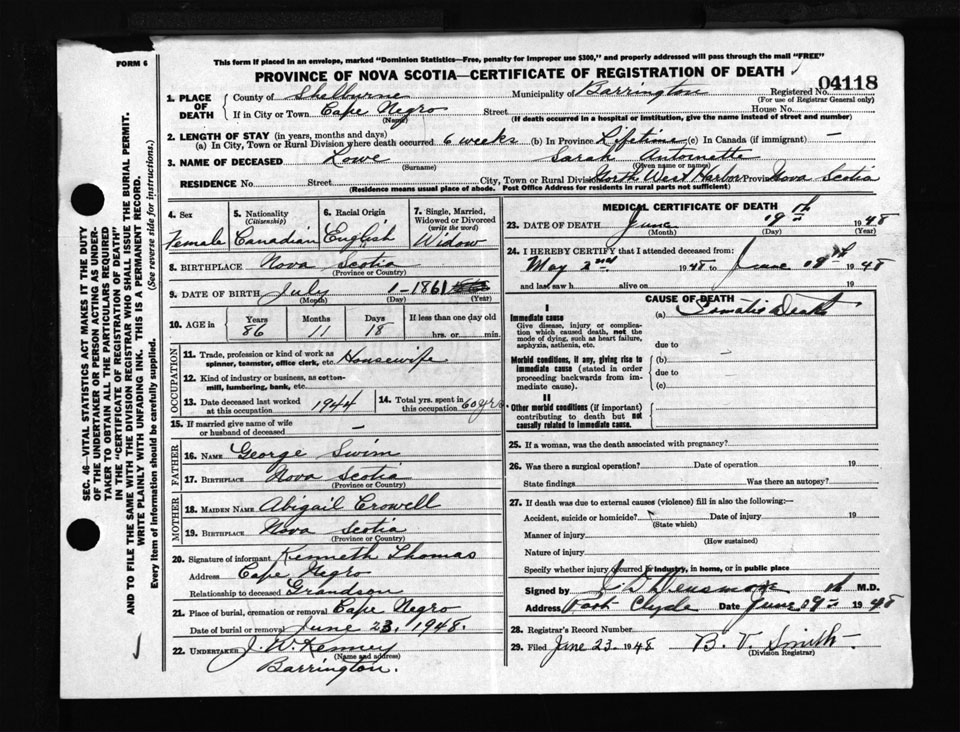 This form if placed in an envelope, marked "Dominion Statistics—Free, penalty for improper use $300," and properly addressed will pass through the mail "FREE"
FORM 6
PROVINCE OF NOVA SCOTIA—CERTIFICATE OF REGISTRATION OF DEATH
04118
1. PLACE OF DEATH County of Shelburne Municipality of Barrington Registered No.
(For use of Registrar General only)
If in City or Town Cape Negro Street House No.
(Name) (If death occurred in a hospital or institution, give the name instead of street and number)
2. LENGTH OF STAY (in years, months and days)
(a) In City, Town or Rural Division where death occurred 6 weeks (b) In Province Lifetime (c) In Canada (if immigrant) —
3. NAME OF DECEASED Lowe Sarah Antornette
(Surname) (Given name or names)
RESIDENCE No. Street City, Town or Rural Division North West Harbor Province Nova Scotia
(Residence means usual place of abode. Post Office Address for residents in rural parts not sufficient)
4. Sex Female
5. Nationality (Citizenship) Canadian
6. Racial Origin English
7. Single, Married, Widowed or Divorced (write the word) Widow
8. BIRTHPLACE Nova Scotia
(Province or Country)
9. DATE OF BIRTH July 1 - 1861
(Month) (Day) (Year)
10. AGE in Years Months Days If less than one day old
86 11 18 hrs. or min.
OCCUPATION
11. Trade, profession or kind of work as spinner, teamster, office clerk, etc. Housewife
12. Kind of industry or business, as cotton-mill, lumbering, bank, etc.
13. Date deceased last worked at this occupation 1944
14. Total yrs. spent in this occupation 60 yrs.
15. If married give name of wife or husband of deceased —
FATHER
16. NAME George Swim
17. BIRTHPLACE Nova Scotia
(Province or Country)
MOTHER
18. MAIDEN NAME Abigail Crowell
19. BIRTHPLACE Nova Scotia
(Province or Country)
20. Signature of informant Kenneth Thomas
Address Cape Negro
Relationship to deceased Grandson
21. Place of burial, cremation or removal Cape Negro
Date of burial or removal June 23, 1948.
22. UNDERTAKER J. W. Kenney
(Name and address)
Barrington.
MEDICAL CERTIFICATE OF DEATH
23. DATE OF DEATH June 19th 1948
(Month) (Day) (Year)
24. I HEREBY CERTIFY that I attended deceased from:
May 2nd 1948 to June 19th 1948
and last saw h alive on 19
CAUSE OF DEATH
I
Immediate cause
Give disease, injury or complication which caused death, not the mode of dying, such as heart failure, asphyxia, asthenia, etc.
(a)
due to
Morbid conditions, if any, giving rise to immediate cause (stated in order proceeding backwards from immediate cause).
(b) —
due to
(c)
II
Other morbid conditions (if important) contributing to death but not causally related to immediate cause.
25. If a woman, was the death associated with pregnancy?
26. Was there a surgical operation? Date of operation 19
State findings Was there an autopsy?
27. If death was due to external causes (violence) fill in also the following:—
Accident, suicide or homicide? Date of injury 19
(State which)
Manner of injury
(How sustained)
Nature of injury
Specify whether injury occurred in industry, in home, or in public place
Signed by J. D. Densmore M.D.
Address Port Clyde Date June 19th 1948
28. Registrar's Record Number
29. Filed June 23 1948 B. V. Smith
(Division Registrar)
SEC. 46—VITAL STATISTICS ACT MAKES IT THE DUTY
OF THE UNDERTAKER OR PERSON ACTING AS UNDER-
TAKER TO OBTAIN ALL THE PARTICULARS REQUIRED
IN THE "CERTIFICATE OF REGISTRATION OF DEATH"
AND TO FILE THE SAME WITH THE DIVISION REGISTRAR WHO SHALL ISSUE THE BURIAL PERMIT.
WRITE PLAINLY WITH UNFADING INK. THIS IS A PERMANENT RECORD.
Every item of Information should be carefully supplied. (See reverse side for instructions.)